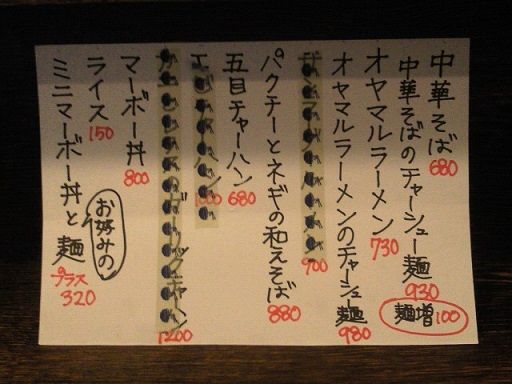 中華そば 680
中華そばのチャーシュー麺 930
麺増 100
オヤマルラーメン 730
オヤマルラーメンのチャーシュー麺 980
900
パクチーとネギの和えそば 880
五目チャーハン 680
1000
1200
マーボー丼 800
ライス 150
ミニマーボー丼と お好みの 麺 プラス 320